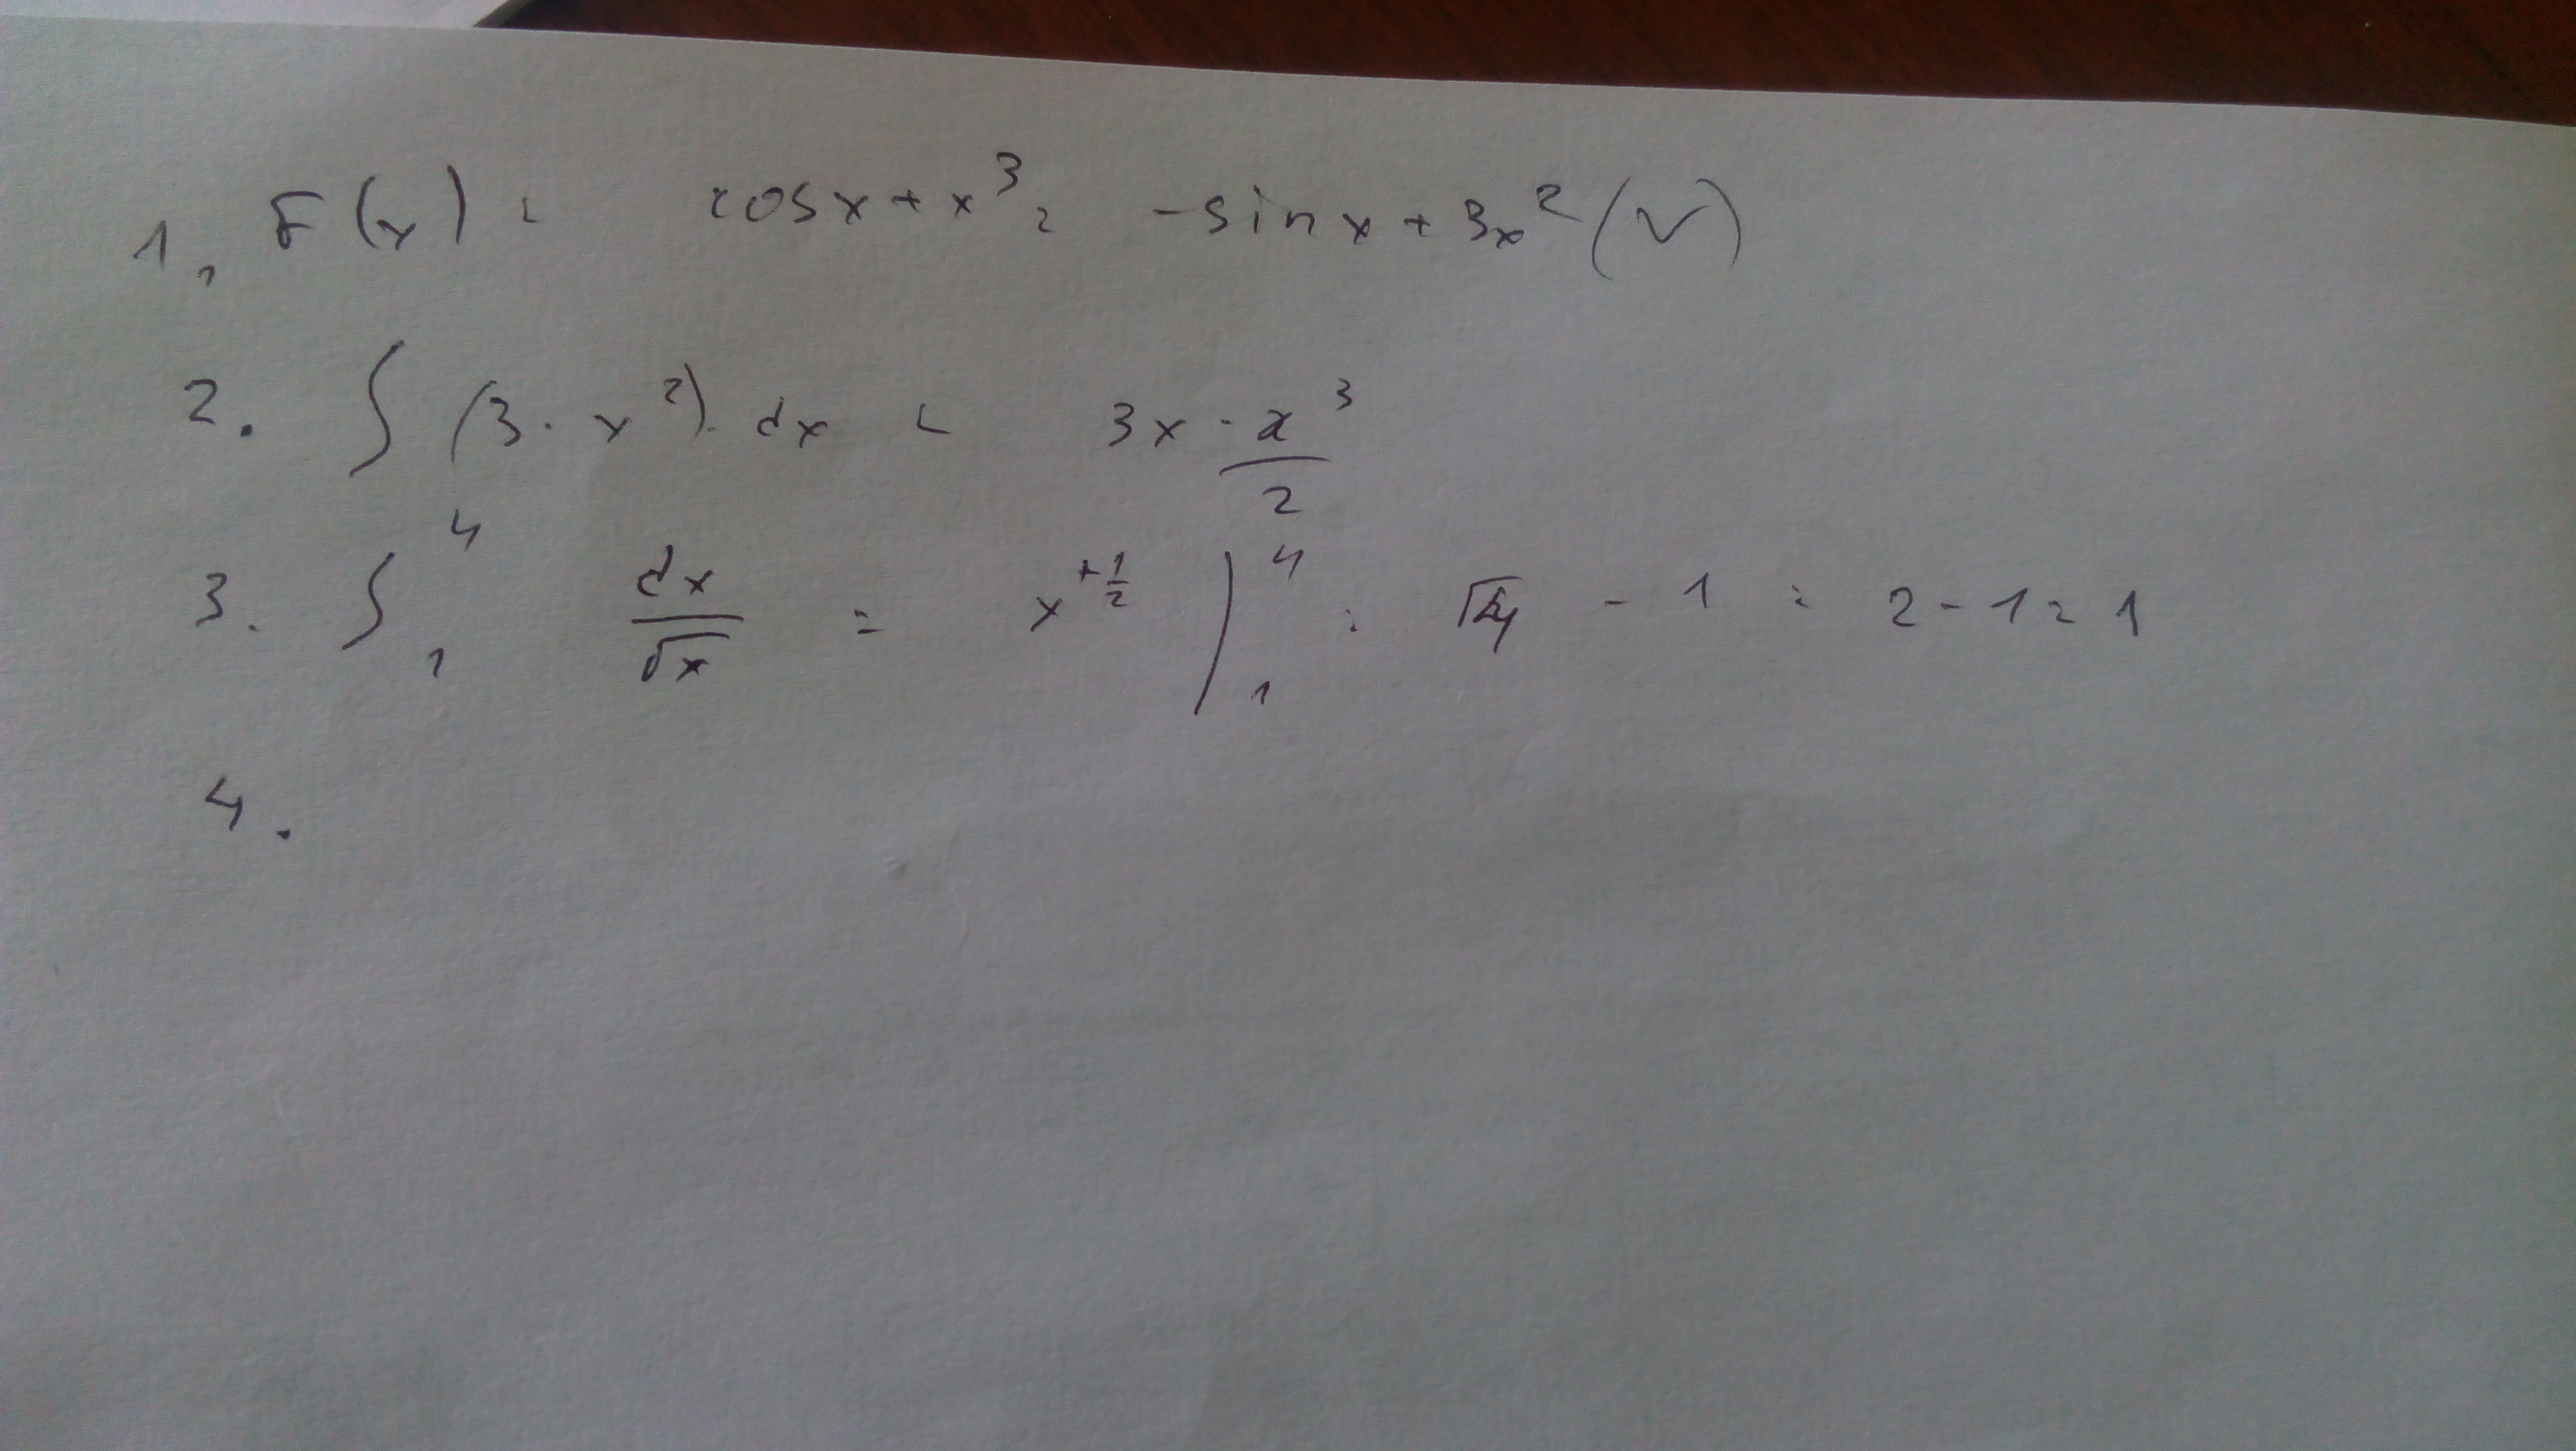 1, F(x) = cosx + x³ = -sinx + 3x² (V)
2. ∫ (3 - x²) dx = 3x - x³/2
3. ∫₁⁴ dx/√x = x^(+1/2) |₁⁴ = √4 - 1 = 2 - 1 = 1
4.